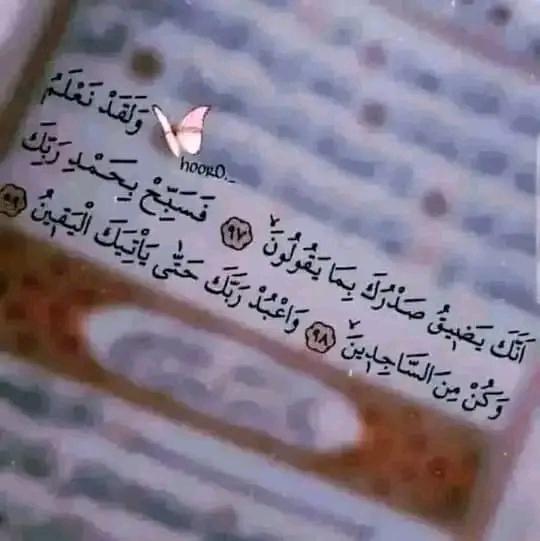 وَلَقَدْ نَعْلَمُ
hoorO._
اَنَّكَ يَضٖيقُ صَدْرُكَ بِمَا يَقُولُونَۙ ﴿٩٧﴾ فَسَبِّحْ بِحَمْدِ رَبِّكَ
وَكُنْ مِنَ السَّاجِدٖينَۙ ﴿٩٨﴾ وَاعْبُدْ رَبَّكَ حَتّٰى يَأْتِيَكَ الْيَقٖينُ ﴿٩٩﴾